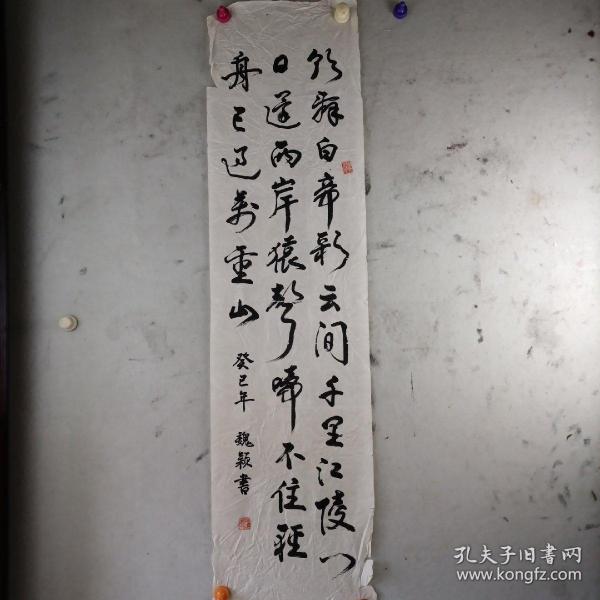 朝辞白帝彩云间千里江陵一
日还两岸猿声啼不住轻
舟已过万重山
癸巳年 魏颖书
孔夫子旧書网
www.kongfz.com